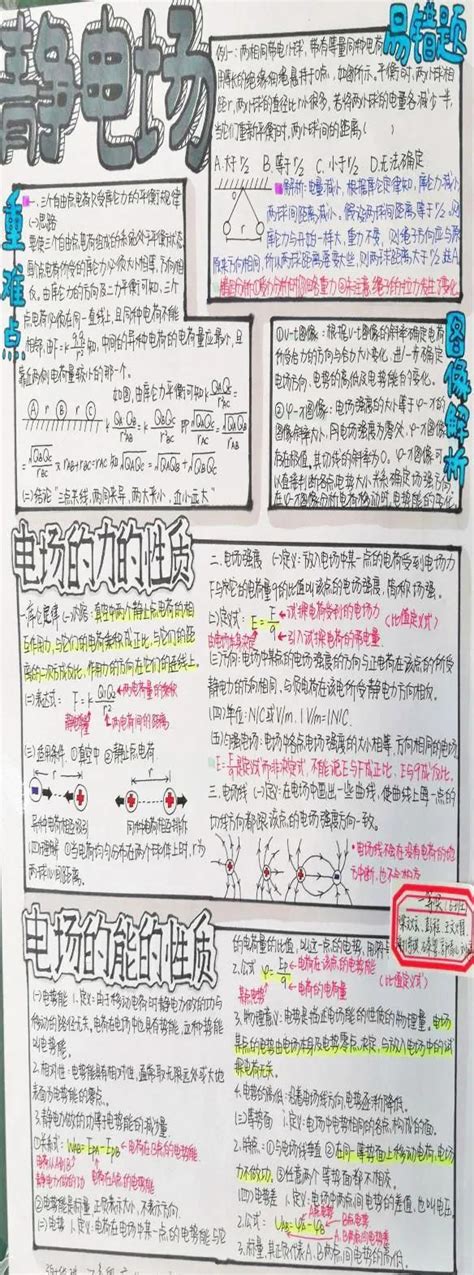 静电场
易错题
例一:两相同带电小球,带有等量同种电荷
用等长的绝缘细绳悬挂于O点,如图所示。平衡时,两小球相
距r,两小球的直径比r小很多,若将两小球的电量各减少一半,
当它们重新平衡时,两小球间的距离( )
A.大于r/2 B.等于r/2 C.小于r/2 D.无法确定
解析:电量减小,根据库仑定律知,库仑力减小
两球间距离减小,假设两球间距离等于r/2,则
库仑力与开始一样大,重力不变,则绳子方向应与
原来方向相同
r
重难点
一、三个自由点电荷仅受库仑力的平衡规律
(一)思路
要使三个自由点电荷组成的系统处于平衡状态
每个点电荷所受的库仑力必须大小相等,方向相
反。由库仑力的方向及二力平衡可知,三个
点电荷必须在同一直线上,且同种电荷不能
相邻,中间的异种电荷的电荷量应最小,且
靠近两侧电荷量较小的那个。
如图,由库仑力平衡可知
A r B r C
(二)结论“三点共线,两同夹异,两大夹小,近小远大”
图像解析
①v-t图像:根据v-t图像的斜率确定电荷
所受合力的方向与合力大小变化,进一步确定
电场方向、电势的高低及电势能的变化。
②φ-x图像:电场强度的大小等于φ-x的
图像斜率大小,电场强度为零处,φ-x图像
存在极值,其切线的斜率为0。φ-x图像可
以直接判断各点电势大小,关系确定场强方向
在φ-x图像分析电荷移动时,电势能的变化
电场的力的性质
一、库仑定律 (一)内容:真空中两个静止点电荷的相
互作用力,与它们的电荷乘积成正比,与它们的距
离的二次方成反比,作用力的方向在它们的连线上。
(二)表达式: F=k Q₁Q₂/r² ←两电荷量的乘积
静电力常量 两电荷间的距离
(三)适用条件 ①真空中 ②静止点电荷
r r
异种电荷相互吸引 同种电荷相互排斥
(四)理解 ①当电荷均匀分布在两个球体上时,r为
两球心间距离。
二、电场强度 (一)定义:放入电场中某一点的电荷受到电场力
F与它的电荷量q的比值叫该点的电场强度,简称场强。
(二)定义式: E=F/q ←试探电荷受到的电场力 (比值定义式)
←引入试探电荷的带电量
(三)方向:电场中某点的电场强度的方向与正电荷在该点的所受
静电力的方向相同,与负电荷在该电所受静电力方向相反。
(四)单位:N/C或V/m,1V/m=1N/C.
(五)匀强电场:电场中各点电场强度的大小相等,方向相同的电场
E=F/q是定义式而非决定式,不能说E与F成正比,E与q成反比。
三、电场线 (一)定义:在电场中画出一些曲线,使曲线上每一点的
切线方向都跟该点的电场强度方向一致。
•电场线不会在没有电荷的地
方中断,也不会相交
电场的能的性质
(一)电势能 1.定义:由于移动电荷时静电力做的功与
移动的路径无关,电荷在电场中也具有势能,这种势能
叫电势能。
2.相对性:电势能具有相对性,通常取无限远处或大地
表面为电势能的零点。
3.静电力做的功等于电势能的减少量
①关系式: WAB=EPA-EPB ←电荷在B点的电势能
静电力做的功 电荷在A点的电势能
②电势能是标量,正负表示大小,不表示方向。
(二)电势 1.定义:电荷在电场中某一点的电势能与它
的电荷量的比值,叫这一点的电势,用
2.公式 φ=Ep/q ←电荷在该点的电势能 (比值定义式)
某点电势 ←电荷的电荷量
3.物理意义:电势是描述电场能的性质的物理量。电场
某点的电势由电场本身及电势零点决定,与放入电场中的试
探电荷无关。
4.电势的高低:沿着电场线方向,电势逐渐降低。
(三)等势面 1.定义:电场中电势相同的各点构成的面。
2.特点:①与电场线垂直 ②在同一等势面上移动电荷,电场
力不做功。③任意两个等势面都不相交。
(四)电势差 1.定义:电场中两点间电势的差值,也叫电压。
A点电势
2.公式: UAB=φA-φB ←B点电势
A、B两点间电势差
3.标量,其正负代表A、B两点间电势的高低。